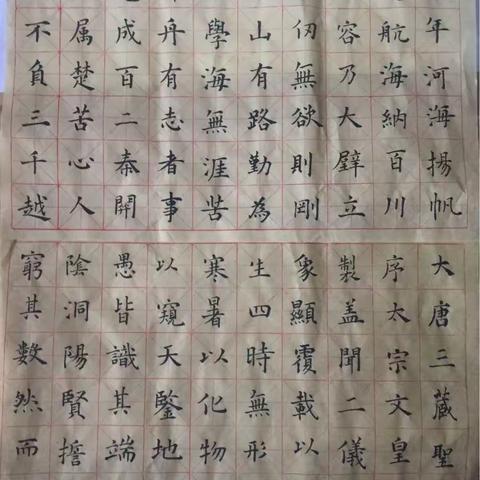 年河海揚帆
航海納百川
容乃大壁立
仞無欲則剛
山有路勤為
學海無涯苦
舟有志者事
成百二泰開
属楚苦心人
不負三千越
大唐三藏聖
序太宗文皇
製盖聞二儀
象顯覆載以
生四時無形
寒暑以化物
以窺天鋻地
愚皆識其端
陰洞陽賢擔
窮其數然而